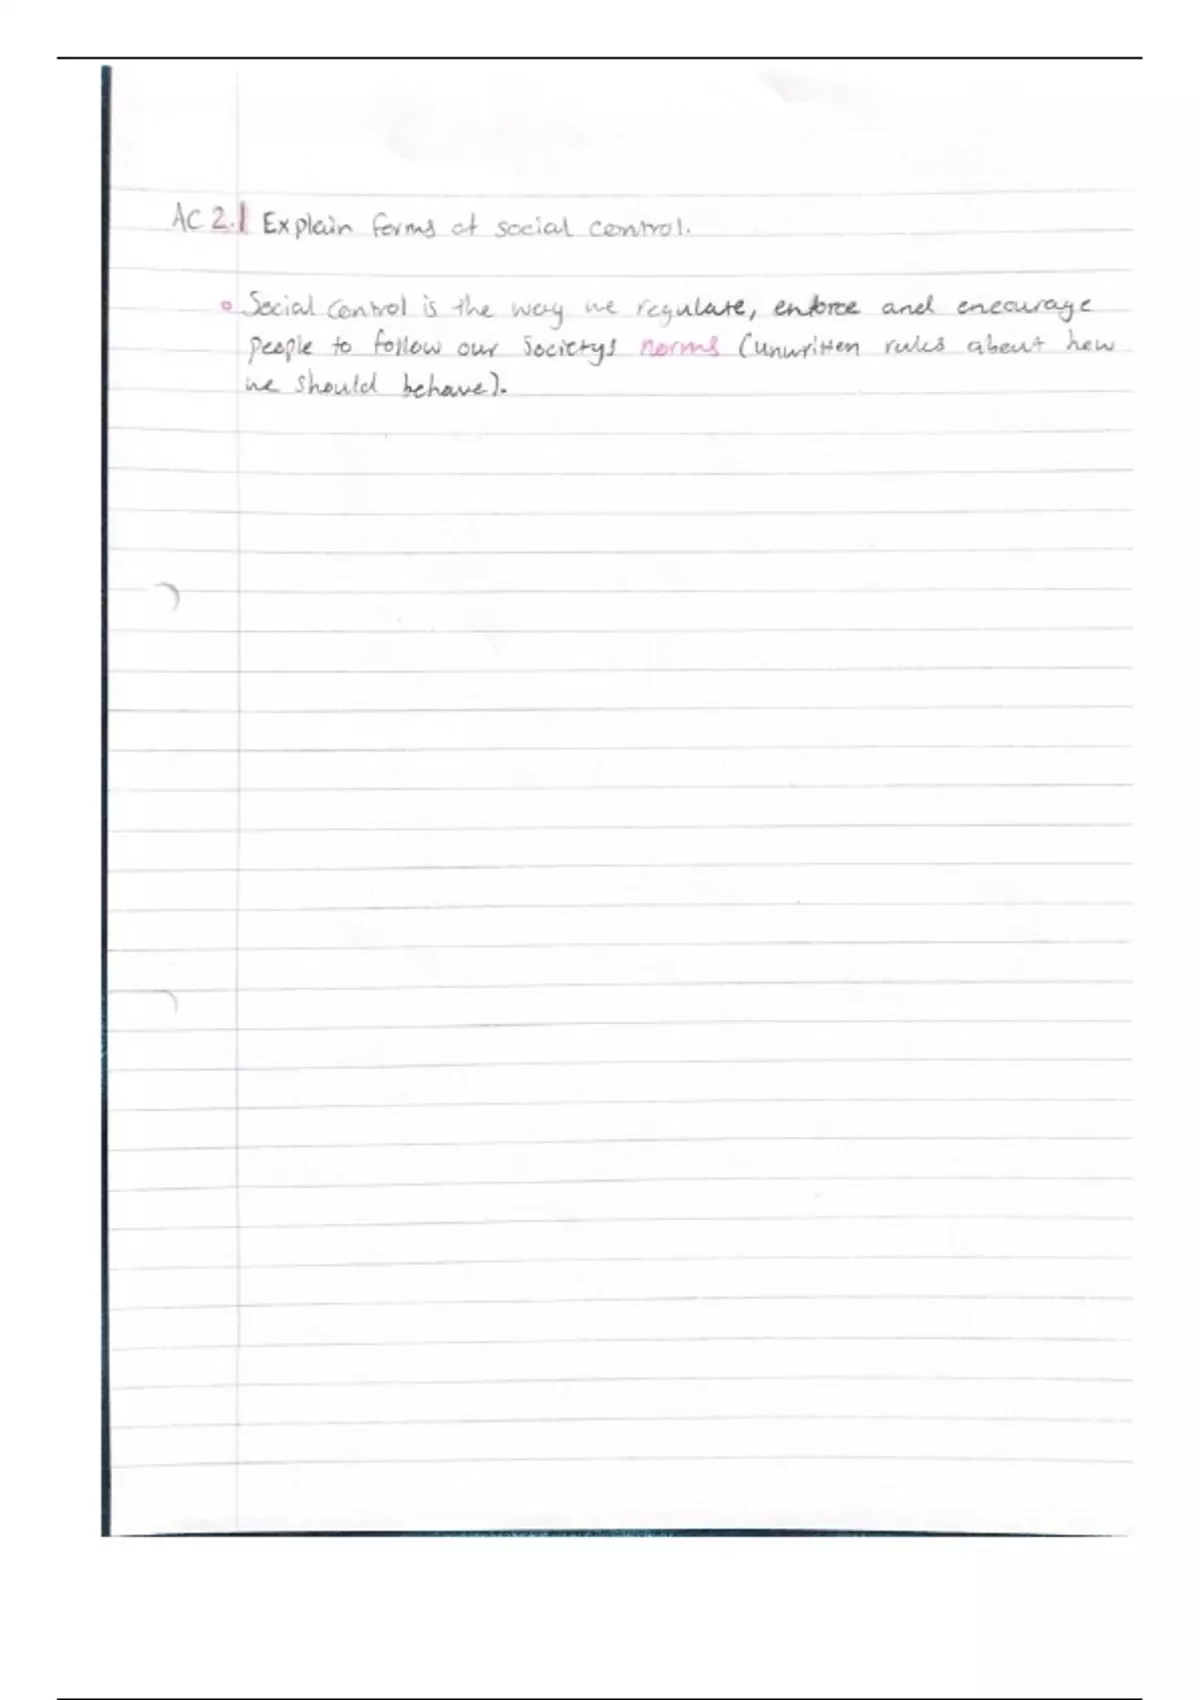 AC 2.1 Explain forms of social control.
Social control is the way we regulate, enforce and encourage
people to follow our societys norms (unwritten rules about how
we should behave).